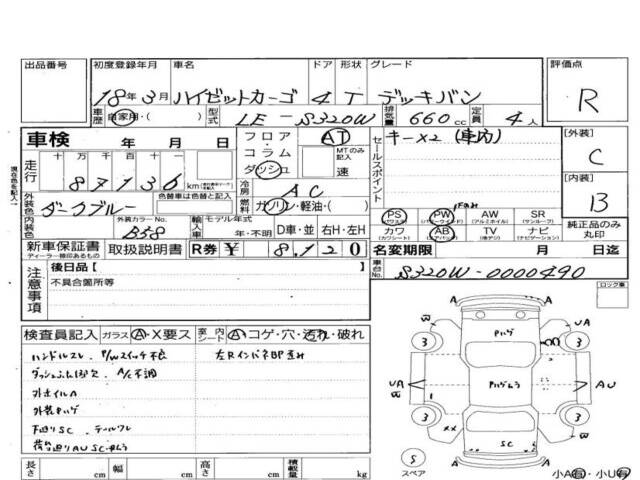 出品番号 初度登録年月 車名 ドア 形状 グレード 評価点
18年3月 ハイゼットカーゴ 4 T デッキバン R
車歴 自家用・( ) 型式 LE-S320W 排気量 660cc 定員 4人
車検 年 月 日 フロア・コラム・ダッシュ AT MTのみ記入 速 セールスポイント キー×2(車内) [外装] C
走行 十万千百十 87136 km
冷房 AC [内装] B
外装色 ダークブルー 色替車は色替と記入 燃料 ガソリン・軽油・( )
PS PW AW SR 純正品のみ丸印
(パワステ) (パワーウインド) (アルミホイル) (サンルーフ)
内装色 外装カラーNo. B58 輸入車 モデル年式 年・不明 D車・並 右H・左H カワ AB TV ナビ
(カワシート) (エアバック) (ナビゲーション)
新車保証書 取扱説明書 R券 ¥ 8,120 名変期限 月 日迄
ディーラー捺印あるもの
車台No. S320W-0000490
注意事項 後日品[ ]
不具合箇所等
ロック車
検査員記入 ガラス A・X要ス 室内シート A コゲ・穴・汚れ・破れ
ハンドルスレ. P/Wスイッチ不良 左RインパネBP歪み
A/C不調
外ホイルA
外装Pハゲ
下廻りSC.
荷台廻りAUSC
A A
B UA
3 Pハゲ 3
UA B AU
3 3
XX SC
A A
S スペア
長さ cm 幅 cm 高さ cm 積載量 kg 小A有・小U有